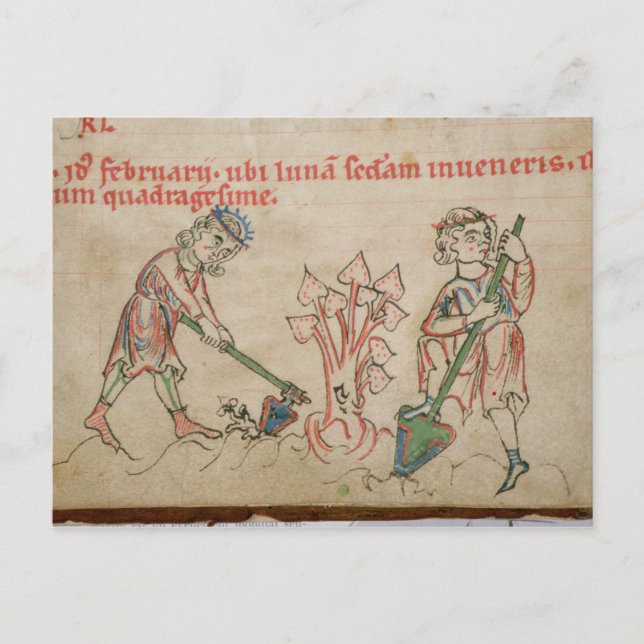 RL
. id februarij. ubi lunā scdam inueneris.
um quadragesime.